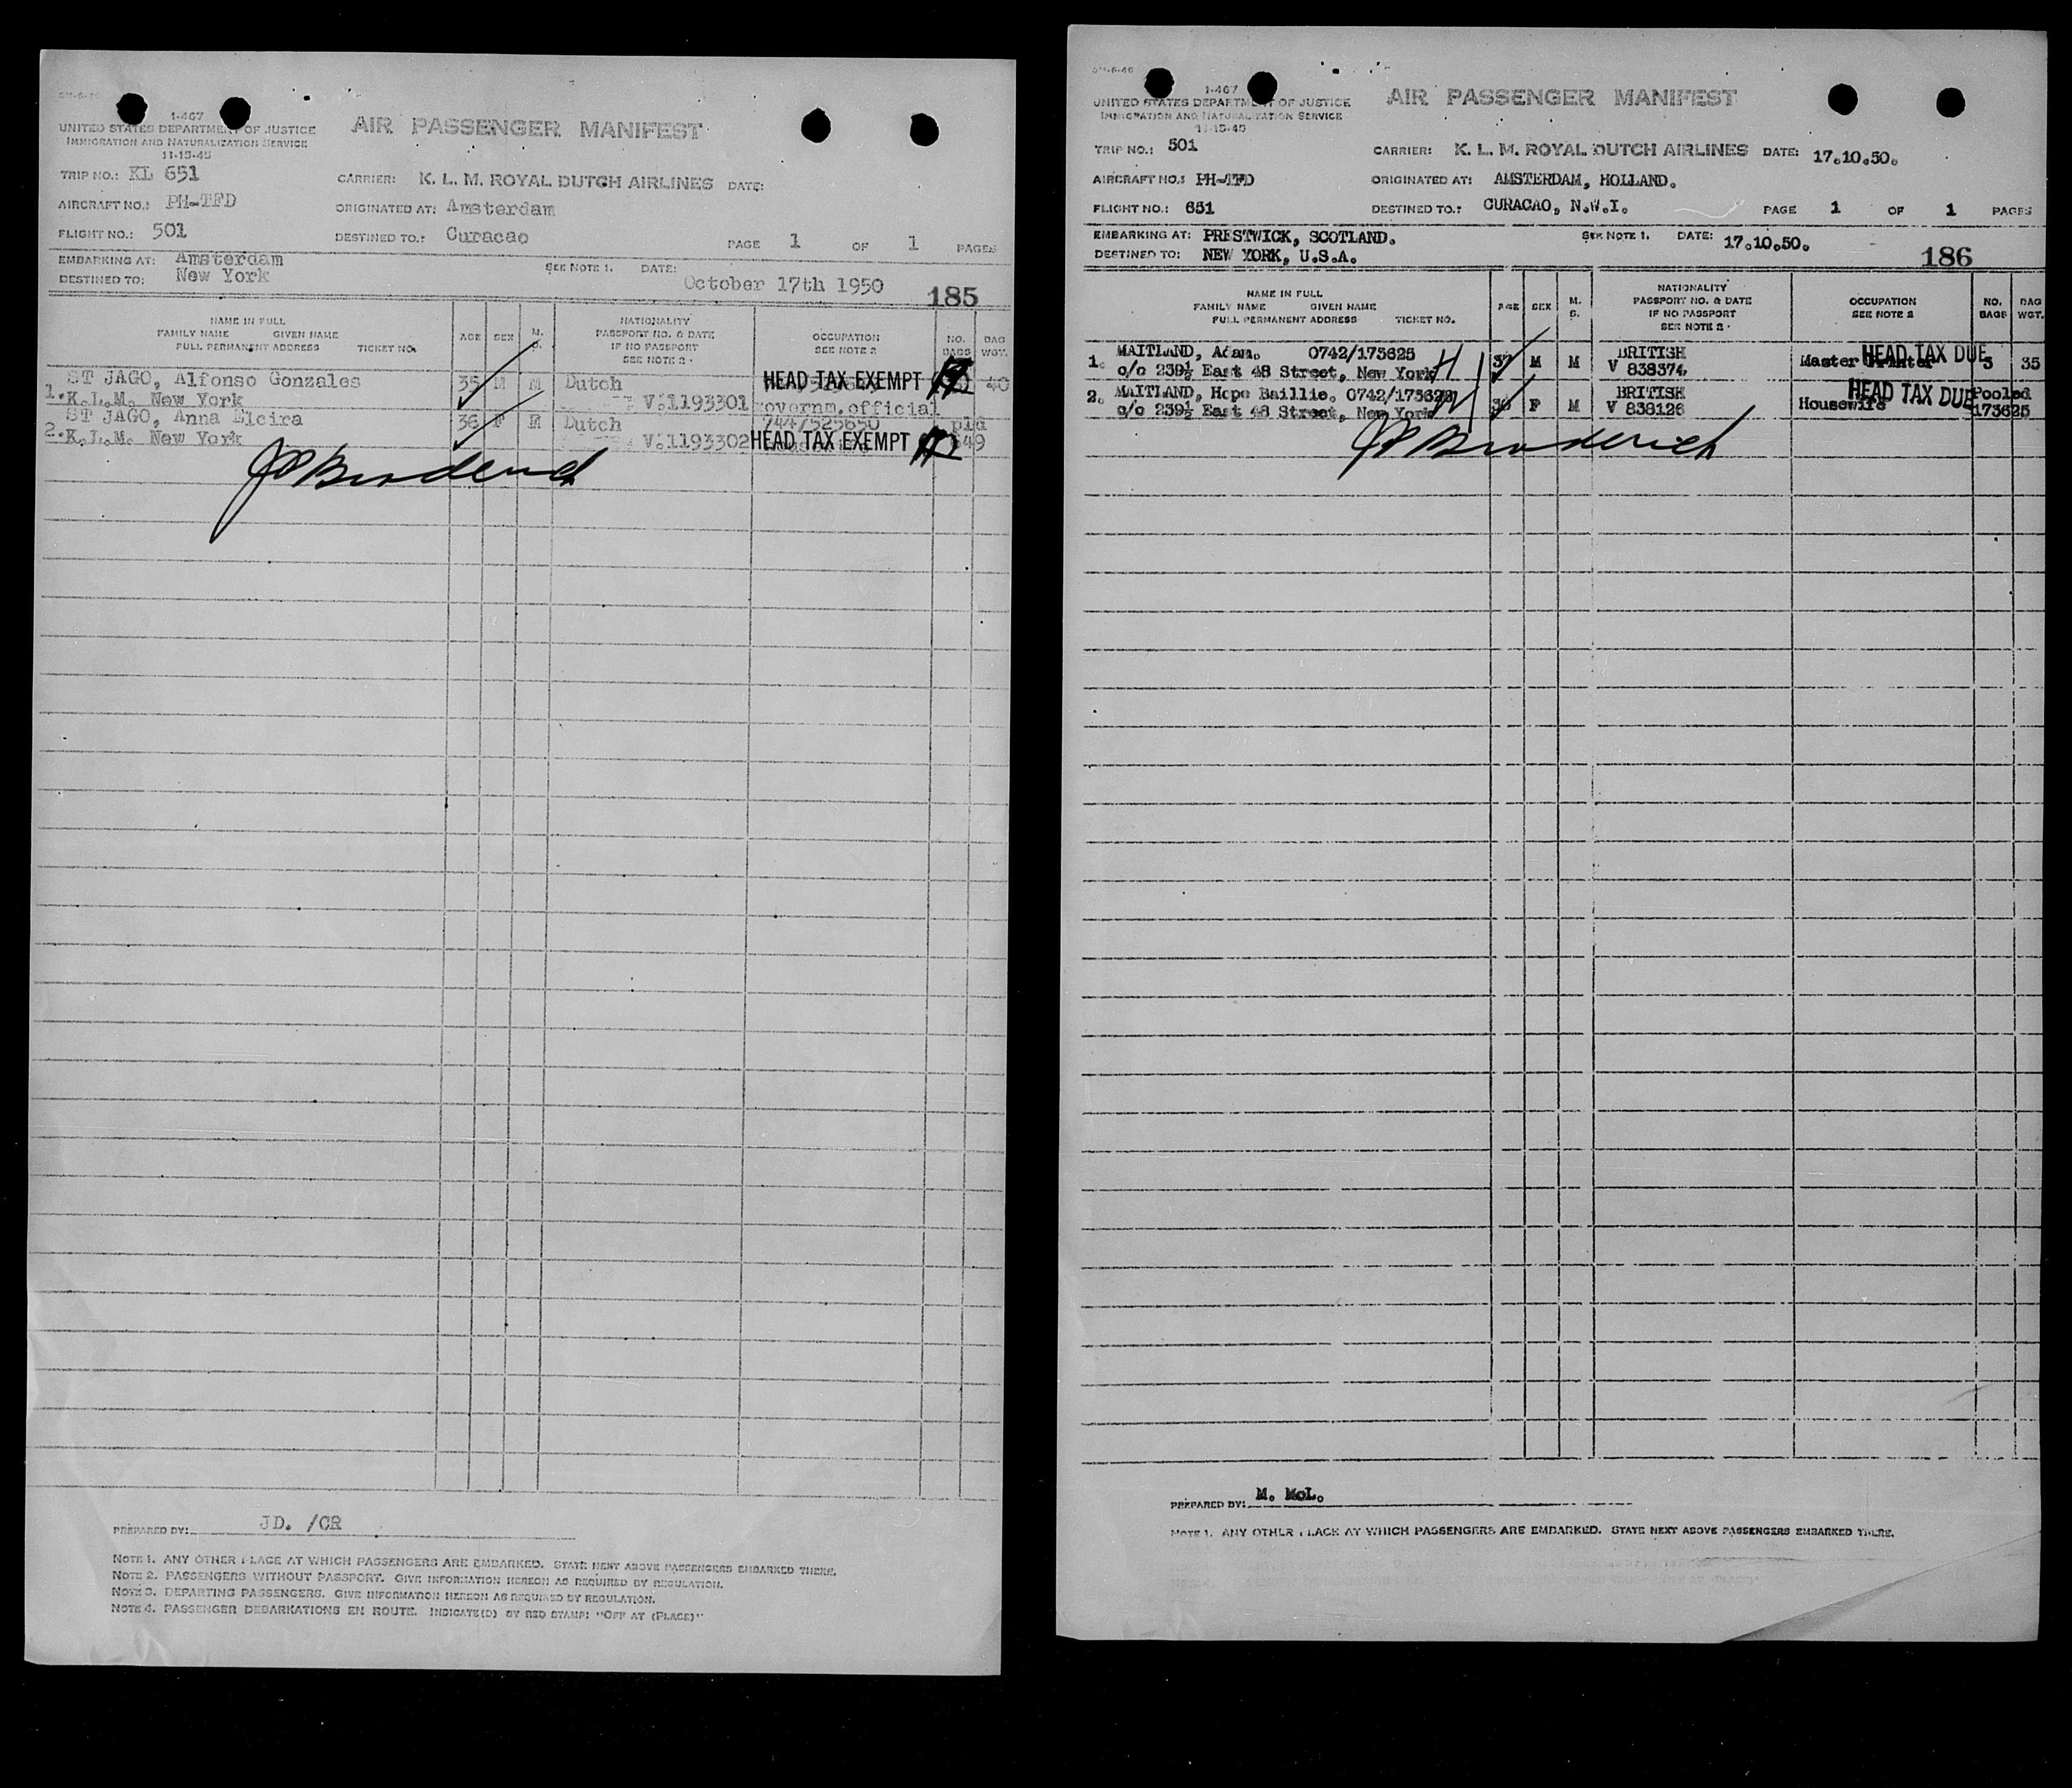 1-467
UNITED STATES DEPARTMENT OF JUSTICE
IMMIGRATION AND NATURALIZATION SERVICE
11-15-45
AIR PASSENGER MANIFEST
TRIP NO.: KL 651
CARRIER: K. L. M. ROYAL DUTCH AIRLINES DATE:
AIRCRAFT NO.: PH-TFD
ORIGINATED AT: Amsterdam
FLIGHT NO.: 501
DESTINED TO.: Curacao
PAGE 1 OF 1 PAGES
EMBARKING AT: Amsterdam
DESTINED TO: New York
SEE NOTE 1. DATE: October 17th 1950
185
NAME IN FULL
FAMILY NAME GIVEN NAME
FULL PERMANENT ADDRESS TICKET NO.
AGE SEX M. S.
NATIONALITY
PASSPORT NO. & DATE
IF NO PASSPORT
SEE NOTE 2.
OCCUPATION
SEE NOTE 2
NO. BAGS
BAG WGT.
1. ST JAGO, Alfonso Gonzales 35 M M Dutch HEAD TAX EXEMPT 40
K.L.M. New York V.1193301 Governm.official
2. ST JAGO, Anna Elcira 36 F M Dutch 744/525650 pld
K.L.M. New York V.1193302 HEAD TAX EXEMPT 49
J Broderick
PREPARED BY: JD. /CR
NOTE 1. ANY OTHER PLACE AT WHICH PASSENGERS ARE EMBARKED. STATE NEXT ABOVE PASSENGERS EMBARKED THERE.
NOTE 2. PASSENGERS WITHOUT PASSPORT. GIVE INFORMATION HEREON AS REQUIRED BY REGULATION.
NOTE 3. DEPARTING PASSENGERS. GIVE INFORMATION HEREON AS REQUIRED BY REGULATION.
NOTE 4. PASSENGER DEBARKATIONS EN ROUTE. INDICATE(D) BY RED STAMP: "OFF AT (PLACE)"
1-467
UNITED STATES DEPARTMENT OF JUSTICE
IMMIGRATION AND NATURALIZATION SERVICE
11-15-45
AIR PASSENGER MANIFEST
TRIP NO.: 501
CARRIER: K. L. M. ROYAL DUTCH AIRLINES DATE: 17.10.50.
AIRCRAFT NO.: PH-TFD
ORIGINATED AT: AMSTERDAM, HOLLAND.
FLIGHT NO.: 651
DESTINED TO.: CURACAO, N.W.I.
PAGE 1 OF 1 PAGES
EMBARKING AT: PRESTWICK, SCOTLAND.
SEE NOTE 1. DATE: 17.10.50.
DESTINED TO: NEW YORK, U.S.A.
186
NAME IN FULL
FAMILY NAME GIVEN NAME
FULL PERMANENT ADDRESS TICKET NO.
AGE SEX M. S.
NATIONALITY
PASSPORT NO. & DATE
IF NO PASSPORT
SEE NOTE 2.
OCCUPATION
SEE NOTE 2
NO. BAGS
BAG WGT.
1. MAITLAND, Adam. 0742/173625 37 M M BRITISH HEAD TAX DUE
c/o 239½ East 48 Street, New York V 838374. Master Printer 3 35
2. MAITLAND, Hope Baillie. 0742/173626 36 F M BRITISH HEAD TAX DUE Pooled
c/o 239½ East 48 Street, New York V 838126 Housewife 173625
J Broderick
PREPARED BY: M. McL.
NOTE 1. ANY OTHER PLACE AT WHICH PASSENGERS ARE EMBARKED. STATE NEXT ABOVE PASSENGERS EMBARKED THERE.